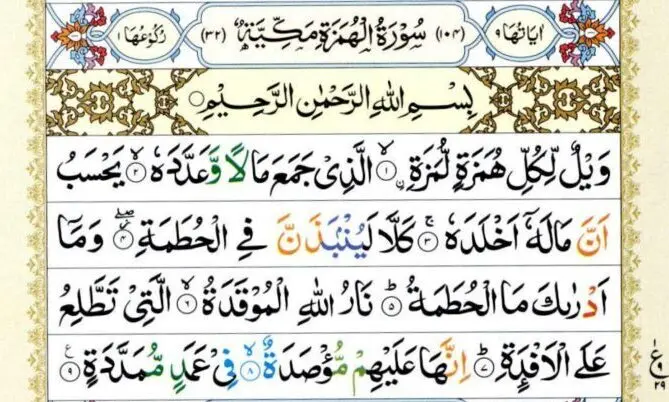 اٰیَاتُهَا ٩ (١٠٤) سُوْرَةُ الْهُمَزَةِ مَكِّیَّةٌ (٣٢) رُكُوْعُهَا ١
بِسْمِ اللهِ الرَّحْمٰنِ الرَّحِیْمِ
وَیْلٌ لِّكُلِّ هُمَزَةٍ لُّمَزَةِ ۙ‏﴿١﴾ ن الَّذِیْ جَمَعَ مَالًا وَّعَدَّدَهٗ ۙ‏﴿٢﴾ یَحْسَبُ
اَنَّ مَالَهٗۤ اَخْلَدَهٗ ۚ‏﴿٣﴾ كَلَّا لَیُنْۢبَذَنَّ فِی الْحُطَمَةِ ۖ‏﴿٤﴾ وَمَاۤ
اَدْرٰىكَ مَا الْحُطَمَةُ ؕ‏﴿٥﴾ نَارُ اللهِ الْمُوْقَدَةُ ۙ‏﴿٦﴾ الَّتِیْ تَطَّلِعُ
عَلَی الْاَفْـِٕدَةِ ؕ‏﴿٧﴾ اِنَّهَا عَلَیْهِمْ مُّؤْصَدَةٌ ۙ‏﴿٨﴾ فِیْ عَمَدٍ مُّمَدَّدَةٍ ﴿٩﴾ ع
ع
٩
٢٩